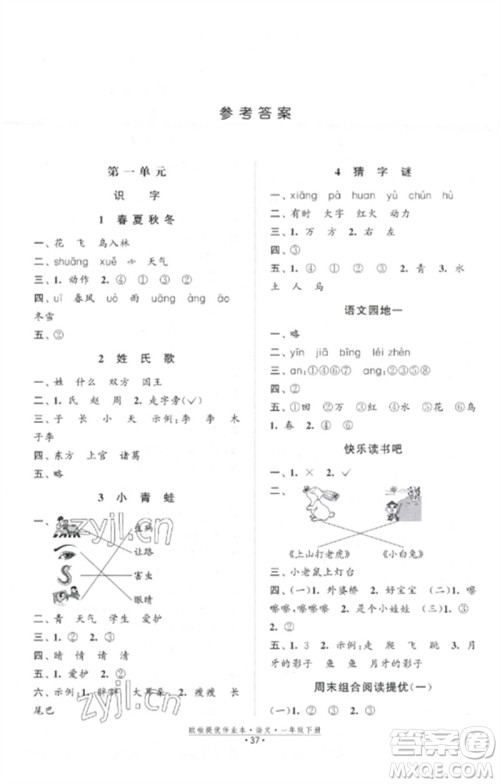 参考答案
第一单元
识字
1 春夏秋冬
一、花 飞 鸟入林
二、shuāng xuě 小 天气
三、1. 动作 2. ④ ① ② ③
四、uǐ 春风 uò 雨
冬雪
五、②
2 姓氏歌
一、姓 什么 双方 国王
二、1. 氏 赵 周 2. 走字旁(✓)
三、子 关 张 示例:李 李 木
子李
四、东方 上官 诸葛
五、略
3 小青蛙
一、
生病
让路
害虫
眼睛
二、青 天气 学生 爱护
三、① ② ③
四、睛 情 请 清
五、1. 爱护 2. ②
六、示例:1. 胖胖 大耳朵 长
尾巴
4 猜字谜
一、xiāng pà huan yǔ chún hù
二、有时 大字 红火 动力
三、1. 万 方 2. 右 左
四、③
五、1. ④ ① ② ③ 2. 青 水
土 人
语文园地一
一、略
二、yīn jiā bīng léi zhèn
三、an:①④⑥ ang:②③⑤
四、①⑤ ③④ ②⑥
五、1. 春 2. ①
快乐读书吧
一、1. × 2. ✓
二、
《上山打老虎》 《小白兔》
三、小老鼠上灯台
四、(一)1. 外婆桥 2. 好宝宝 (二)1.
2. ③
五、1. 3 2. 示例:走 爬 飞 跳 3. 月
牙的影子 鱼 鱼 月牙儿的影子
周末组合阅读提优(一)
欧啦提优作业本·语文·一年级下册
·37·
zyjl.cn
zyjl.cn
作业帮
MXQE.COM
作业帮
MXQE.COM